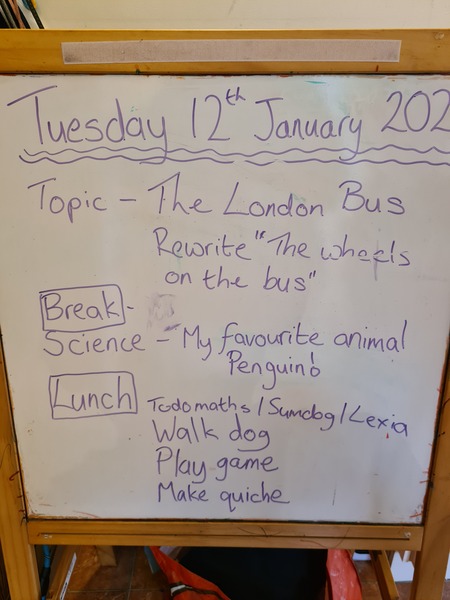 Tuesday 12th January 202
Topic - The London Bus
Rewrite "The wheels
on the bus"
Break -
Science - My favourite animal
Penguin!
Lunch
Todomaths / Sumdog / Lexia
Walk dog
Play game
Make quiche